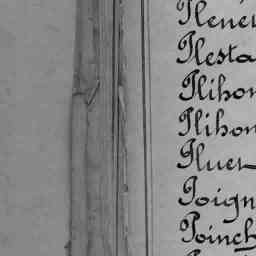 Plene
Plesta
Plihon
Plihon
Pluer
Poign
Poinch